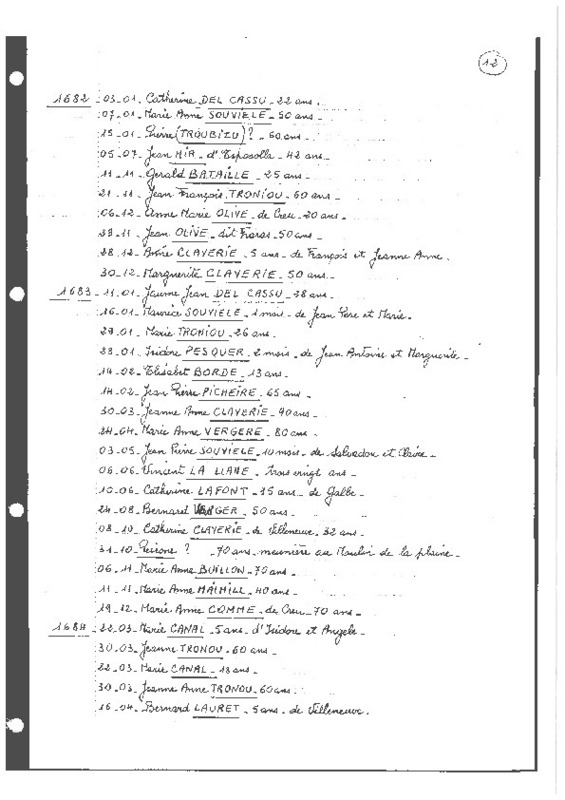 12
1682 - 03-01- Catherine DEL CASSU - 22 ans.
07-01- Marie Anne SOUVIELE - 50 ans -
15-01- Pierre (TROUBIZU)? - 60 ans -
05-07- Jean MIR - d'Esposolla - 42 ans -
11-11- Gerald BATAILLE - 25 ans -
21-11- Jean François TRONIOU - 60 ans -
06-12- Anne Marie OLIVE - de Creu - 20 ans -
28-11- Jean OLIVE - dit - 50 ans -
28-12- Anne CLAVERIE - 5 ans - de François et Jeanne Anne.
30-12- Marguerite CLAVERIE - 50 ans -
1683 - 11-01- Jaume Jean DEL CASSU - 38 ans -
16-01- Maurice SOUVIELE - 1 mois - de Jean Pere et Marie -
29-01- Marie TRONIOU - 26 ans -
23-01- Isidore PESQUER - 2 mois - de Jean Antoine et Marguerite -
14-02- Elisabet BORDE - 13 ans -
14-02- Jean Pierre PICHEIRE - 65 ans -
30-03- Jeanne Anne CLAVERIE - 40 ans -
24-04- Marie Anne VERGERE - 80 ans -
03-05- Jean Pierre SOUVIELE - 10 mois - de Salvador et Claire -
06-06- Vincent LA LLANE - trois vingt ans -
10-06- Catherine LAFONT - 15 ans - de Galbe -
24-08- Bernard VERGER - 50 ans -
08-10- Catherine CLAVERIE - de Villeneuve - 32 ans -
31-10- Peirone ? - 70 ans - meunière au Moulin de la plaine -
06-11- Marie Anne BUILLON - 70 ans -
11-11- Marie Anne MAIMILL - 40 ans -
19-12- Marie Anne COMME - de Creu - 70 ans -
1684 - 22-03- Marie CANAL - 5 ans - d'Isidore et Angele -
30-03- Jeanne TRONOU - 60 ans -
22-03- Marie CANAL - 18 ans -
30-03- Jeanne Anne TRONOU - 60 ans -
16-04- Bernard LAURET - 5 ans - de Villeneuve.